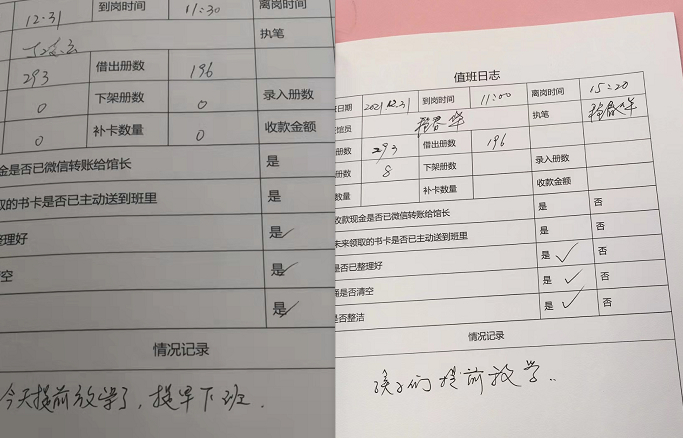 12.31 到岗时间 11:30 离岗时间
执笔
293 借出册数 196
0 下架册数 0 录入册数
0 补卡数量 0 收款金额
金是否已微信转账给馆长 是
取的书卡是否已主动送到班里 是
整理好 是✓
清空 是✓
是✓
情况记录
今天提前放学了，提早下班.
值班日志
班日期 2021.12.31 到岗时间 11:00 离岗时间 15:20
馆员 执笔
册数 293 借出册数 196
册数 8 下架册数 录入册数
数量 补卡数量 收款金额
收款现金是否已微信转账给馆长 是 否
未来领取的书卡是否已主动送到班里 是 否
是否已整理好 是✓ 否
桶是否清空 是✓ 否
是否整洁 是✓ 否
情况记录
孩子们提前放学..